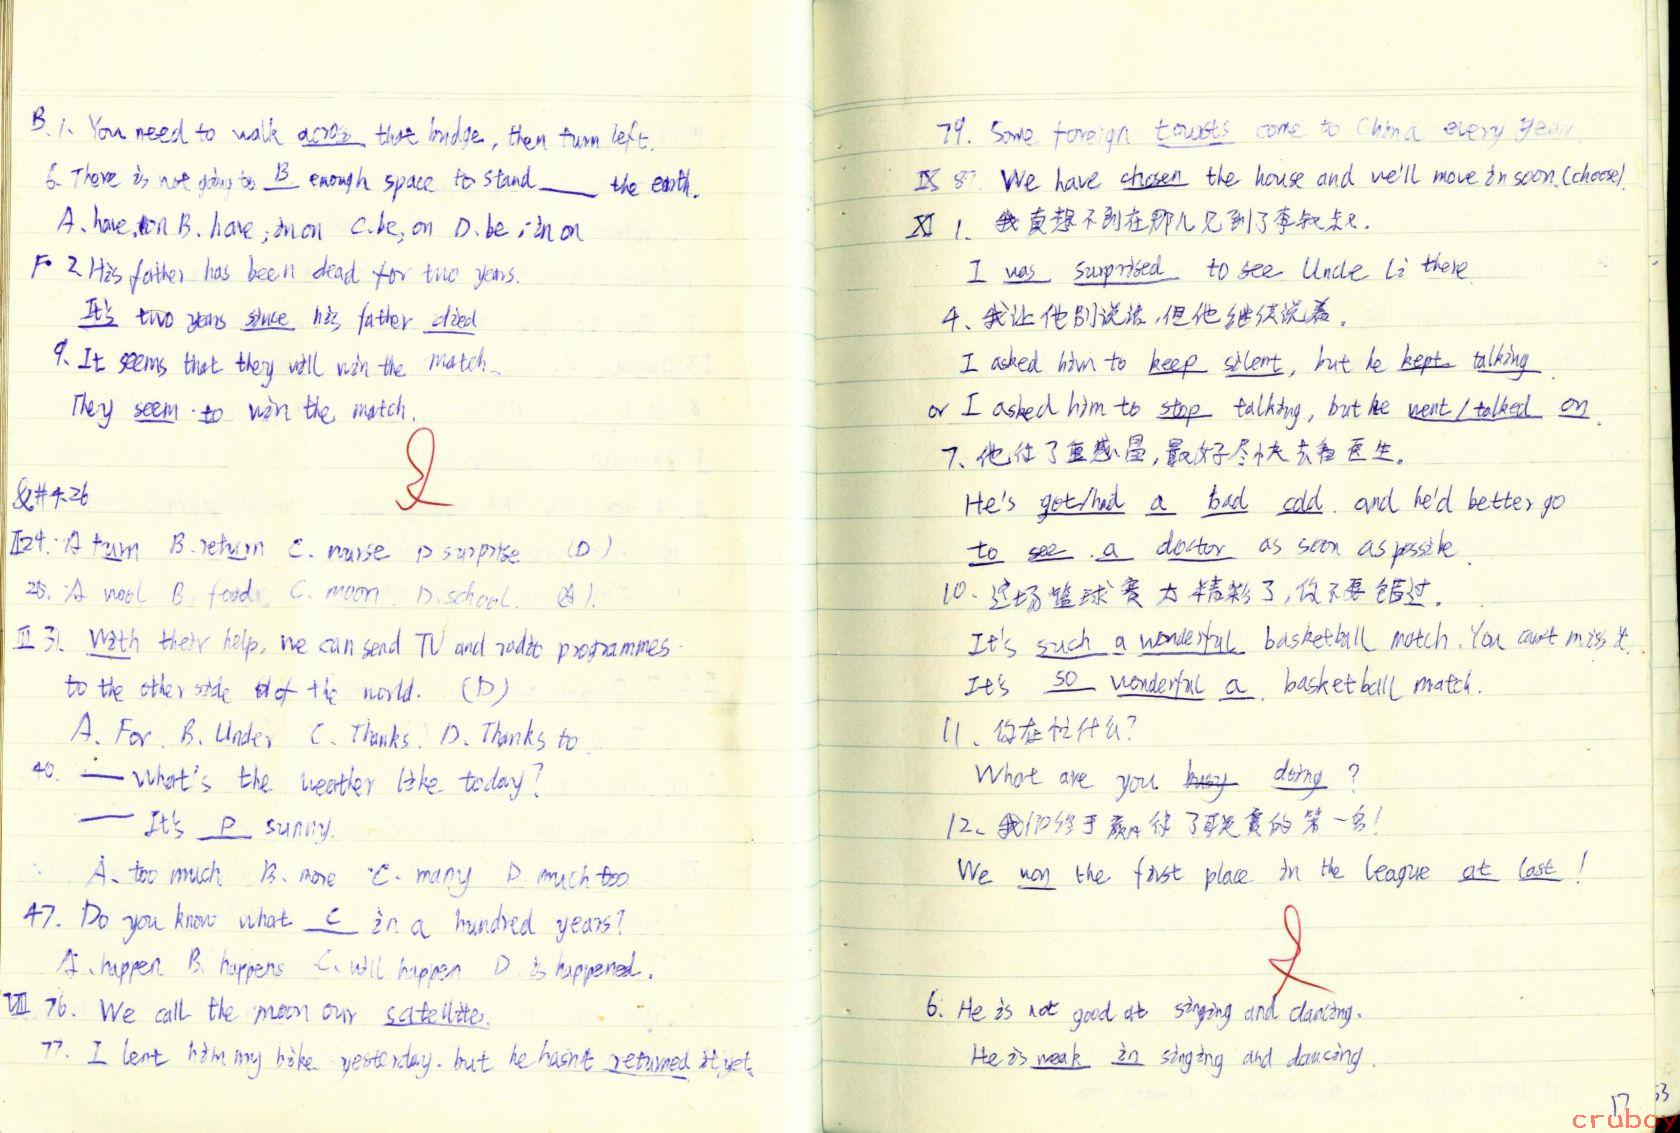 B. 1. You need to walk across that bridge, then turn left.
6. There is not going to B enough space to stand ____ the earth.
A. have, on B. have, in on C. be, on D. be, in on
F. 2. His father has been dead for two years.
It's two years since his father died
9. It seems that they will win the match.
They seem to win the match.
&#4.26
II 24. A turn B. return C. nurse D surprise (D)
28. A wool B. food C. moon D. school. (A).
III 31. With their help, we can send TV and radio programmes
to the other side of the world. (D)
A. For B. Under C. Thanks. D. Thanks to
40. — What's the weather like today?
— It's D sunny.
A. too much B. more C. many D. much too
47. Do you know what C in a hundred years?
A. happen B. happens C. will happen D. is happened.
VIII 76. We call the moon our satellite.
77. I lent him my bike yesterday. but he hasn't returned it yet.
79. Some foreign tourists come to China every year.
IX 8 We have chosen the house and we'll move in soon. (choose)
XI 1. 我真想不到在那儿见到了李叔叔.
I was surprised to see Uncle Li there.
4、我让他别说话,但他继续说着.
I asked him to keep silent, but he kept talking
or I asked him to stop talking, but he went/talked on.
7. 他得了重感冒,最好尽快去看医生。
He's got/had a bad cold. and he'd better go
to see a doctor as soon as possible.
10. 这场篮球赛太精彩了,你不要错过.
It's such a wonderful basketball match. You can't miss it.
It's so wonderful a basketball match.
11、你在忙什么?
What are you busy doing ?
12、我们终于赢得了联赛的第一名!
We won the first place in the league at last!
6. He is not good at singing and dancing.
He is weak in singing and dancing.
17 53
cruboy